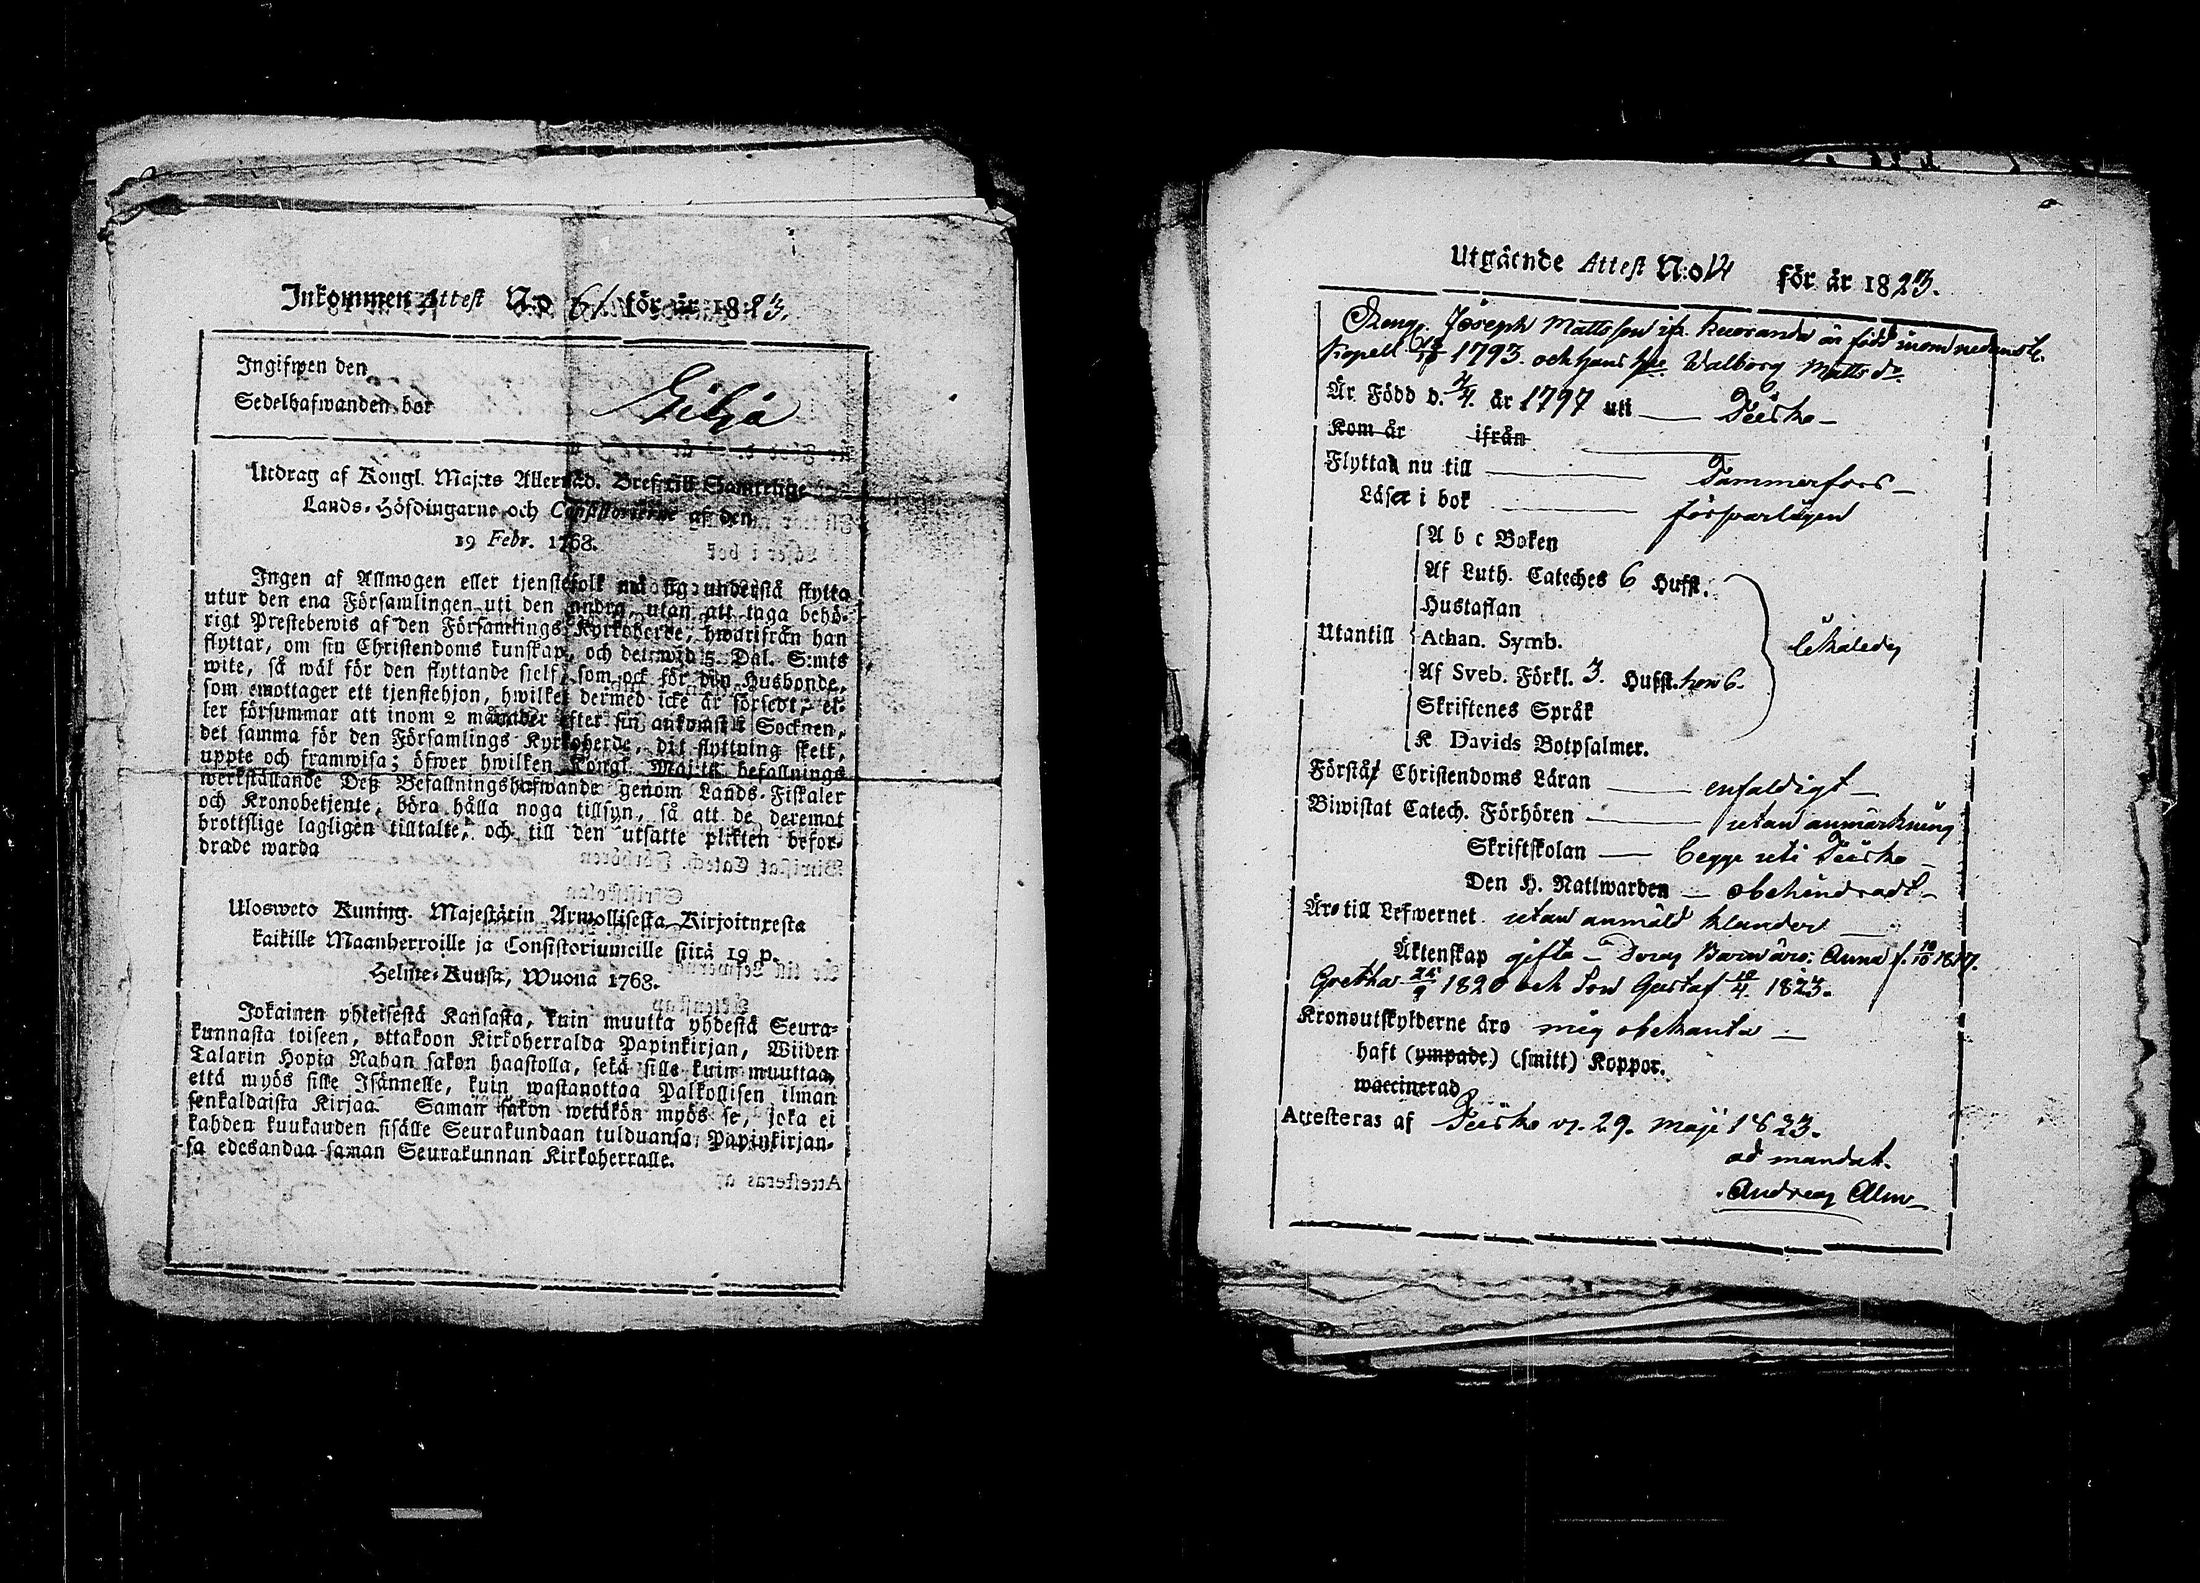 Inkommen Attest N:o 61 för år 1823.
Ingifwen den
Sedelhafwanden bor Gilja
Utdrag af Kongl. Maj:ts Allernåd. Bref till Samtelige
Lands-Höfdingarne och Consistorierne af den
19 Febr. 1768.
Ingen af Allmogen eller tjenstefolk må sig understå flytta
utur den ena Församlingen uti den andra, utan att taga behö-
rigt Prestebewis af den Församlings Kyrkoherde, hwarifrån han
flyttar, om sin Christendoms kunskap, och det wid 5 Dal. S:mts
wite, så wäl för den flyttande sielf, som ock för den Husbonde,
som emottager ett tjenstehjon, hwilket dermed icke är försedt, el-
ler försummar att inom 2 månader efter sin ankomst i Socknen,
det samma för den Församlings Kyrkoherde, dit flyttning skett,
uppte och framwisa; öfwer hwilken Kongl. Maj:ts befallnings
werkställande Deß Befallningshafwande genom Lands-Fiskaler
och Kronobetjente, böra hålla noga tillsyn, så att de deremot
brottslige lagligen tilltalte, och till den utsatte plikten befor-
drade warda
Ulosweto Kuning. Majestätin Armollisesta Kirjoituxesta
kaikille Maanherroille ja Consistoriumeille siitä 19 p.
Helme-Kuusa, Wuona 1768.
Jokainen yhteisestä Kansasta, kuin muutta yhdestä Seura-
kunnasta toiseen, ottakoon Kirkoherralda Papinkirjan, Wiiden
Talarin Hopia Rahan sakon haastolla, sekä sille kuin muuttaa,
että myös sille Isännelle, kuin wastanottaa Palkollisen ilman
senkaldaista Kirjaa. Saman sakon wetäkön myös se, joka ei
kahden kuukauden sisälle Seurakundaan tulduansa, Papinkirjan-
sa edesandaa saman Seurakunnan Kirkoherralle.
Utgående Attest N:o 14 för år 1823.
Dreng. Joseph Mattsson ifr. Kuoranda är född inom nedanst.
Kapell 1793. och hans hu Walborg Mattsdr
Är Född d. 4/4. år 1797 uti Teisko
Kom år ifrån
Flyttar nu till Tammerfors
Läser i bok försvarligen
A b c Boken
Af Luth. Cateches 6 Hufst.
Hustaflan
Utantill Athan. Symb.
Af Sveb. Förkl. 3. Hufst. hon 6.
Skriftenes Språk
K Davids Botpsalmer.
Förstår Christendoms Läran enfaldigt
Biwistat Catech. Förhören utan anmärkning
Skriftskolan begge uti Teisko
Den H. Nattwarden obehindradt
Äro till Lefwernet utan anmäld klander
Äktenskap gifta Deras Barn äro: Anna f. 1817.
Gretha 1820 och Son Gustaf 1823.
Kronoutskylderne äro mig obekanta
haft (ympade) (smitt) Koppor.
waccinerad
Attesteras af Teisko d. 29. Maji 1823.
ad mandat.
Andreas Alm